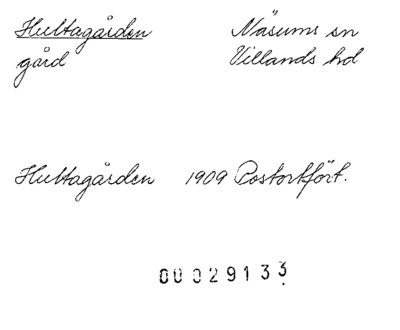 Hultagården Näsums sn
gård Villands hd
Hultagården 1909 Postortfört.
00029133